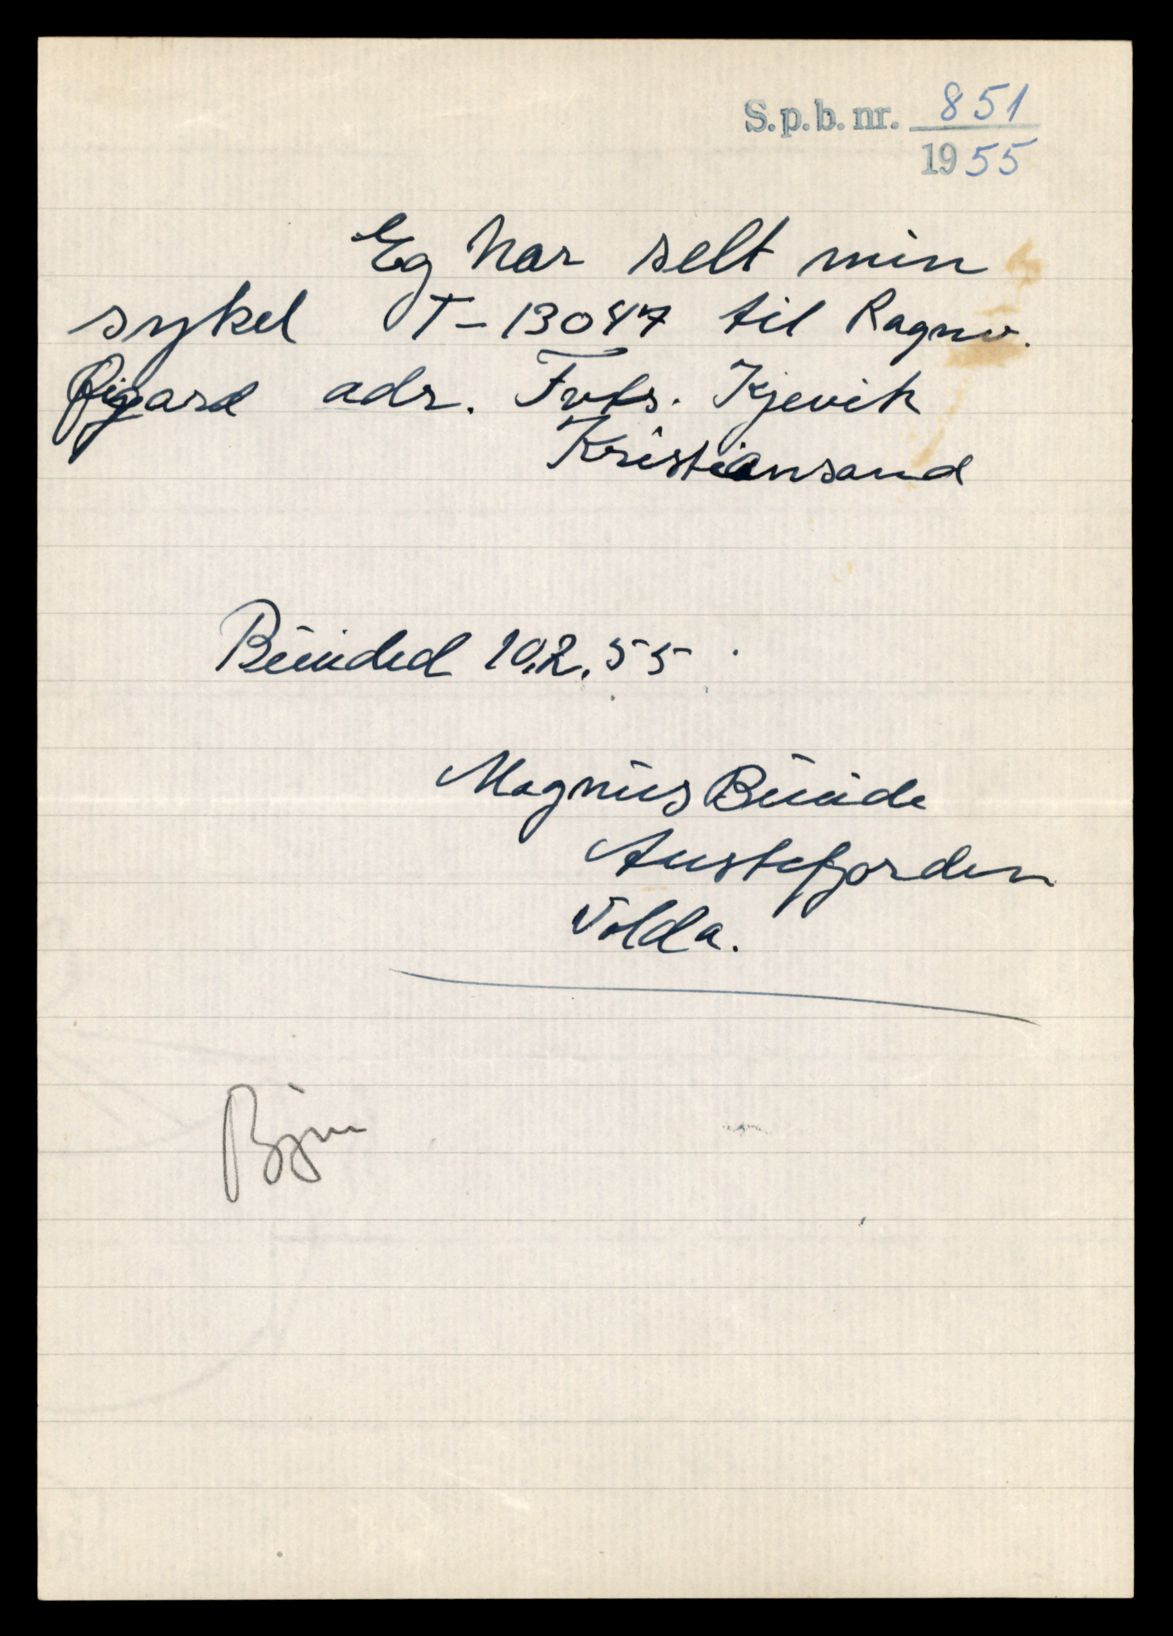 S.p.b. nr. 851
1955
Eg har selt min
sykel T-13047 til Ragnv.
Øigard adr. Fvts. Kjevik
Kristiansand
10.2.55
Magnus
Austefjorden
Volda.